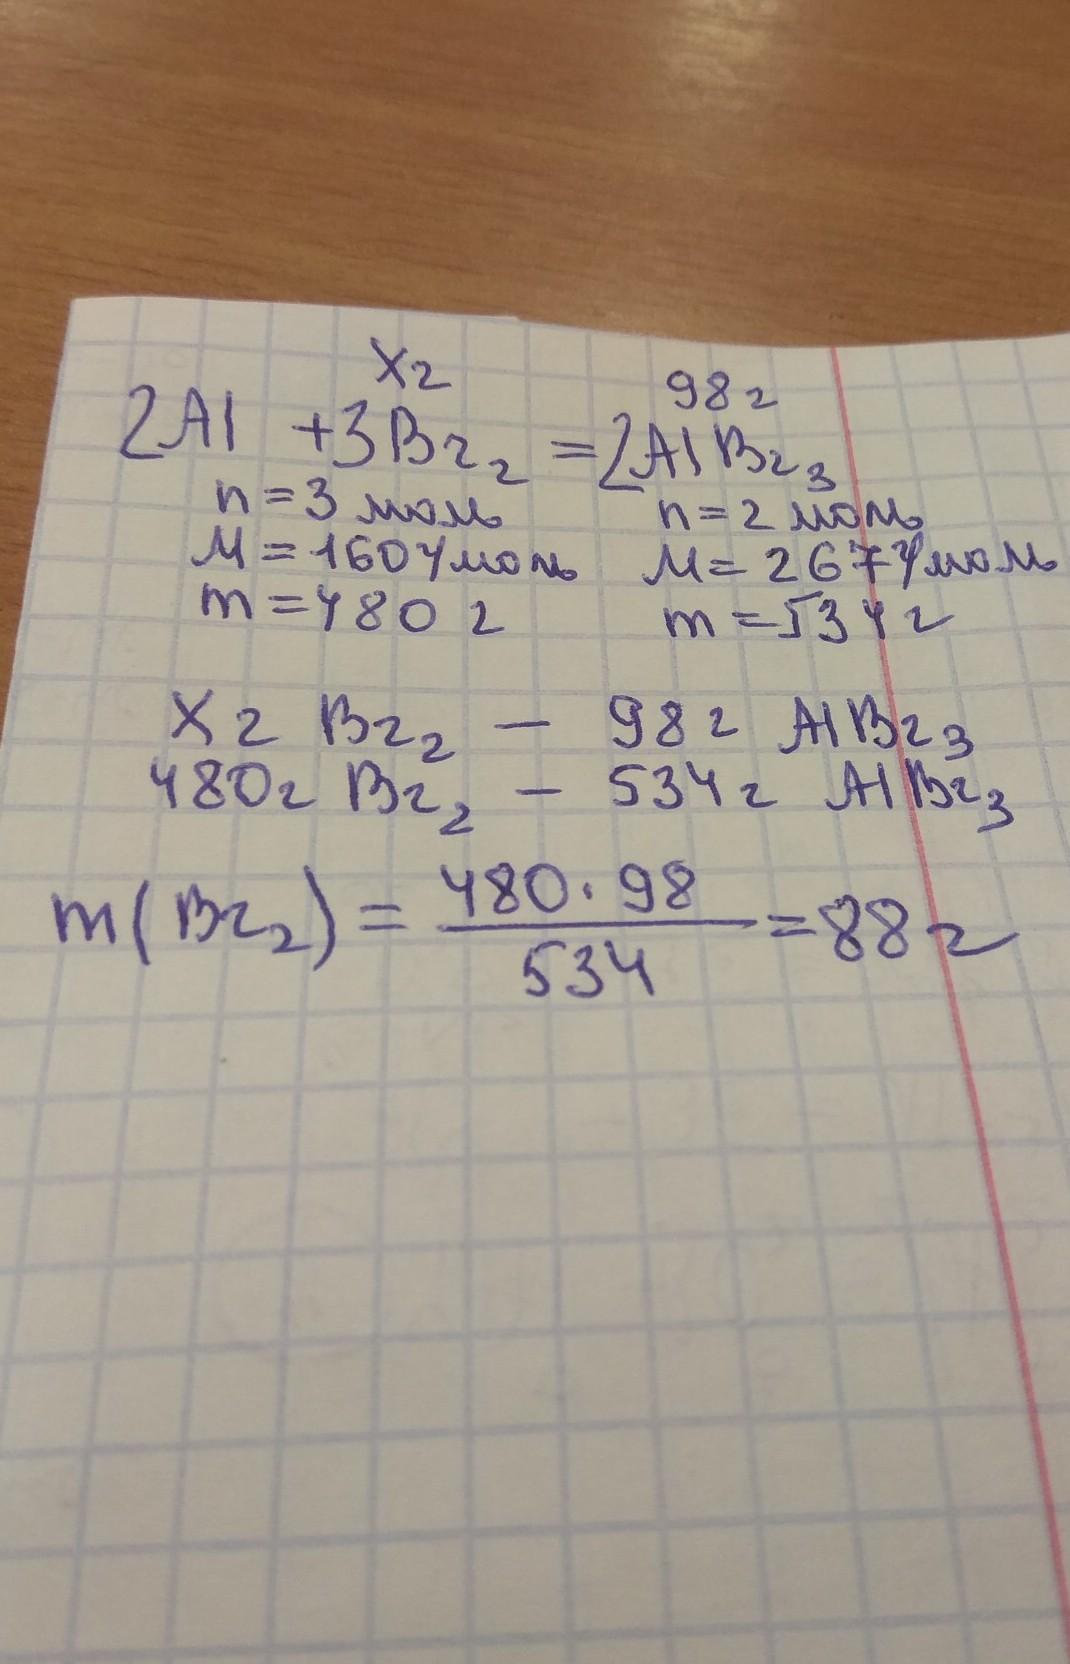 Xг 98г
2Al + 3Br₂ = 2AlBr₃
n = 3 моль n = 2 моль
M = 160 г/моль M = 267 г/моль
m = 480 г m = 534 г
Xг Br₂ – 98г AlBr₃
480г Br₂ – 534г AlBr₃
m(Br₂) = 480·98/534 = 88г